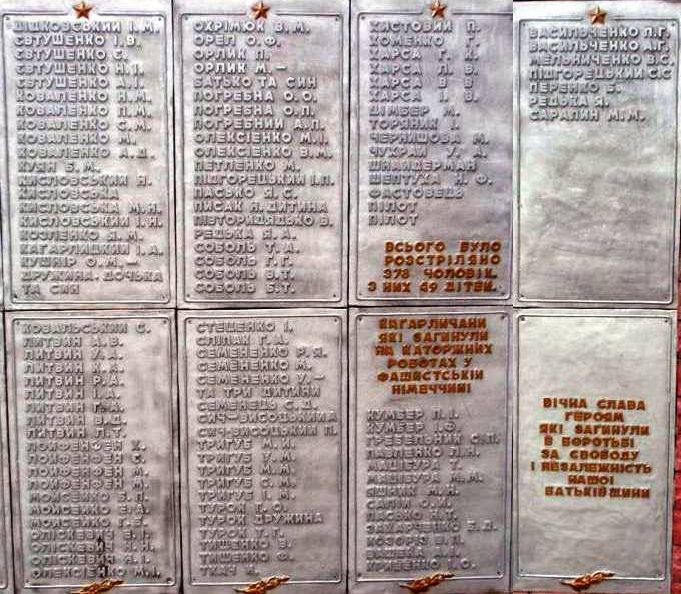 ДІДКОВСЬКИЙ І.М.
ЄВТУШЕНКО І.В.
ЄВТУШЕНКО Є.
ЄВТУШЕНКО Н.І.
ЄВТУШЕНКО А.І.
КОВАЛЕНКО Н.М.
КОВАЛЕНКО П.М.
КОВАЛЕНКО С.М.
КОВАЛЕНКО М.
КОВАЛЕНКО А.Д.
КУЯН Б.М.
КИСЛОВСЬКИЙ Н.
КИСЛОВСЬКА
КИСЛОВСЬКА М.Н.
КИСЛОВСЬКИЙ І.Н.
КОЗЛЕНКО Я.М.
КАГАРЛИЦКИЙ І.А.
КУШНІР Ф.М.—
ДРУЖИНА, ДОЧЬКА
ТА СИН
ОХРІМЮК В.М.
ОРЕЛ О.Ф.
ОРЛИК П.
ОРЛИК М.—
ЖІНКО ТА СИН
ПОГРЕБНА О.О.
ПОГРЕБНА О.П.
ПОГРЕБНИЙ А.П.
ОЛЕКСІЄНКО М.І.
ОЛЕКСІЄНКО В.М.
ПЕТЛЕНКО М.
ПІДГОРЕЦЬКИЙ І.П.
ПАСЬКО Я.С.
ПИСАК Н. ДИТИНА
ПІВТОРАДЯДЬКО В.
РЕДЬКА Я.А.
СОБОЛЬ Т.А.
СОБОЛЬ Г.Г.
СОБОЛЬ В.Т.
СОБОЛЬ Б.Т.
ХИСТОВИЙ П.
ХОМЕНКО Г.
ХАРСА Г. К.
ХАРСА П. В.
ХАРСА В В
ХАРСА І. В.
ЦІМБЕР М.
ТОРЯНИК І.
ЧЕРНИШОВА М.
ЧУХРАЙ У. А.
ШНАЙДЕРМАН
ШЕПТУХА Н. Ф.
ФАСТОВЕЦЬ
ПІЛОТ
ПІЛОТ
ВСЬОГО БУЛО
РОЗСТРІЛЯНО
378 ЧОЛОВІК.
З НИХ 49 ДІТЕЙ.
ВАСИЛЬЧЕНКО П.Г.
ВАСИЛЬЧЕНКО А.Г.
МЕЛЬНИЧЕНКО В.С.
ПІДГОРЕЦЬКИЙ С С
ПЕРЕНКО Б.
РЕДЬКА Я.
САРАПИН М.М.
КОВАЛЬСЬКИЙ С.
ЛИТВИН А.В.
ЛИТВИН У.А.
ЛИТВИН К.А.
ЛИТВИН Р.А.
ЛИТВИН І.А.
ЛИТВИН Г.А.
ЛИТВИН В.Д.
ЛИТВИН Л.Т.
ЛОЙФЕНФЕН Х.
ЛОЙФЕНФЕН О.
ЛОЙФЕНФЕН М.
ЛОЙФЕНФЕН М.
МОЙСЕНКО Б.П.
МОЙСЕЙКО Е.А.
МОЙСЕЙКО Г.Б.
ОЛІСКЕВИЧ Е.П.
ОЛІСКЕВИЧ Н.Н.
ОЛІСКЕВИЧ А.І.
ОЛЕКСІЄНКО М.І.
СТЕЦЕНКО І.
СЛІПАК Г.А.
СЕМЕНЕНКО Р.Я.
СЕМЕНЕНКО М.
СЕМЕНЕНКО У.—
ТА ТРИ ДИТИНИ
СЕМЕНЕЦЬ С.Д.
СИЧ-ВИСОЦЬКИЙ А
СИЧ-ВИСОЦЬКИЙ П.
ТРИГУБ М.Х.
ТРИГУБ У.М.
ТРИГУБ М.М.
ТРИГУБ С.М.
ТРИГУБ І.М.
ТУРОК Г.О.
ТУРОК ДРУЖИНА
ТУРОК Т.Г.
ТИЩЕНКО В.
ТИЩЕНКО Ф.
ТКАЧ Н.
КАГАРЛИЧАНИ
ЯКІ ЗАГИНУЛИ
НА КАТОРЖНИХ
РОБОТАХ У
ФАШИСТСЬКІЙ
НІМЕЧЧИНІ
КУМБЕР П.І.
КУМБЕР І.Ф.
ГРЕБЕЛЬНИК С.П.
ПАВЛЕНКО Л.Н.
МАЦІБУРА Т.
МАЦІБУРА М.М.
ЯШНИК М.Н.
САПІЙ О.И.
ПАСЬКО В.Т.
ЗАХАРЧЕНКО Е.Д.
КОЗОРІЗ В.П.
ВИШЕКА А.І.
КРИВЕНКО І.О.
ВІЧНА СЛАВА
ГЕРОЯМ
ЯКІ ЗАГИНУЛИ
В БОРОТЬБІ
ЗА СВОБОДУ
І НЕЗАЛЕЖНІСТЬ
НАШОЇ
БАТЬКІВЩИНИ